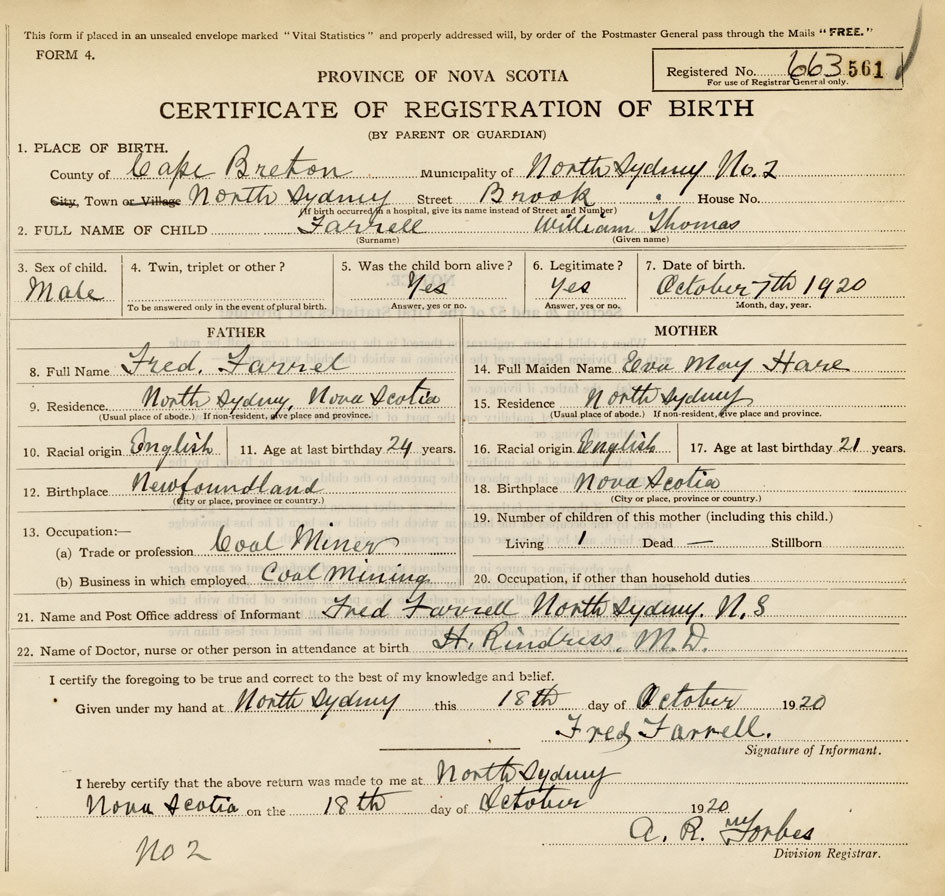 This form if placed in an unsealed envelope marked "Vital Statistics" and properly addressed will, by order of the Postmaster General pass through the Mails "FREE."
FORM 4.
Registered No. 663 561
For use of Registrar General only.
PROVINCE OF NOVA SCOTIA
CERTIFICATE OF REGISTRATION OF BIRTH
(BY PARENT OR GUARDIAN)
1. PLACE OF BIRTH.
County of Cape Breton Municipality of North Sydney No. 2
City, Town or Village North Sydney Street Brook House No.
(If birth occurred in a hospital, give its name instead of Street and Number)
2. FULL NAME OF CHILD Farrell William Thomas
(Surname) (Given name)
3. Sex of child. 4. Twin, triplet or other? 5. Was the child born alive? 6. Legitimate? 7. Date of birth.
Male Yes Yes October 7th 1920
To be answered only in the event of plural birth. Answer, yes or no. Answer, yes or no. Month, day, year.
FATHER
8. Full Name Fred. Farrel
9. Residence. North Sydney, Nova Scotia
(Usual place of abode.) If non-resident, give place and province.
10. Racial origin English 11. Age at last birthday 24 years.
12. Birthplace Newfoundland
(City or place, province or country.)
13. Occupation:—
(a) Trade or profession Coal Miner
(b) Business in which employed Coal Mining
MOTHER
14. Full Maiden Name Eva May Hare
15. Residence North Sydney
(Usual place of abode.) If non-resident, give place and province.
16. Racial origin English 17. Age at last birthday 21 years.
18. Birthplace Nova Scotia
(City or place, province or country.)
19. Number of children of this mother (including this child.)
Living 1 Dead — Stillborn
20. Occupation, if other than household duties
21. Name and Post Office address of Informant Fred Farrell North Sydney. N.S
22. Name of Doctor, nurse or other person in attendance at birth H. , M.D.
I certify the foregoing to be true and correct to the best of my knowledge and belief.
Given under my hand at North Sydney this 18th day of October 1920
Fred Farrell.
Signature of Informant.
I hereby certify that the above return was made to me at North Sydney
Nova Scotia on the 18th day of October 1920
A. R. Forbes
Division Registrar.
No 2